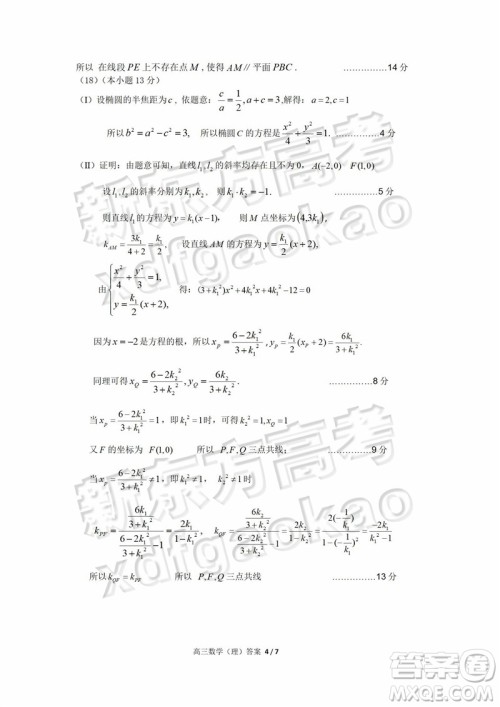 所以 在线段 PE 上不存在点 M，使得 AM // 平面 PBC． ……………14 分
（18）（本小题 13 分）
（Ⅰ）设椭圆的半焦距为 c，依题意：c/a = 1/2, a+c=3, 解得：a=2, c=1
所以 b²=a²−c²=3,　所以椭圆 C 的方程是 x²/4 + y²/3 = 1. ……………4 分
（Ⅱ）证明：由题意可知，直线 l₁,l₂ 的斜率均存在且不为 0，A(−2,0)　F(1,0)
设 l₁,l₂ 的斜率分别为 k₁,k₂，则 k₁·k₂=−1. ……………5 分
则直线 l₁ 的方程为 y=k₁(x−1),　则 M 点坐标为 (4,3k₁),
k_AM = 3k₁/(4+2) = k₁/2,　设直线 AM 的方程为 y = k₁/2 (x+2),
由 { x²/4 + y²/3 = 1, y = k₁/2 (x+2),　得：(3+k₁²)x²+4k₁²x+4k₁²−12=0
因为 x=−2 是方程的根，所以 x_p = (6−2k₁²)/(3+k₁²), y_P = k₁/2 (x_P+2) = 6k₁/(3+k₁²)
同理可得 x_Q = (6−2k₂²)/(3+k₂²), y_Q = 6k₂/(3+k₂²). ……………8 分
当 x_p = (6−2k₁²)/(3+k₁²) = 1，即 k₁²=1 时，可得 k₂²=1, x_Q=1
又 F 的坐标为 F(1,0)　所以 P,F,Q 三点共线 ……………
当 x_p = (6−2k₁²)/(3+k₁²) ≠ 1，即 k₁² ≠ 1，k₂² ≠ 1 时
k_PF = (6k₁/(3+k₁²))/((6−2k₁²)/(3+k₁²) − 1) = 2k₁/(1−k₁²),　k_QF = (6k₂/(3+k₂²))/((6−2k₂²)/(3+k₂²) − 1) = 2k₂/(1−k₂²) = 2(−1/k₁)/(1−(−1/k₁)²) = −2k₁/(k₁²−1)
所以 k_QF = k_PF　所以 P,F,Q 三点共线 ……………13 分
高三数学（理）答案 4 / 7
新东方高考
xdfgaokao
新东方高考
xdfgaokao